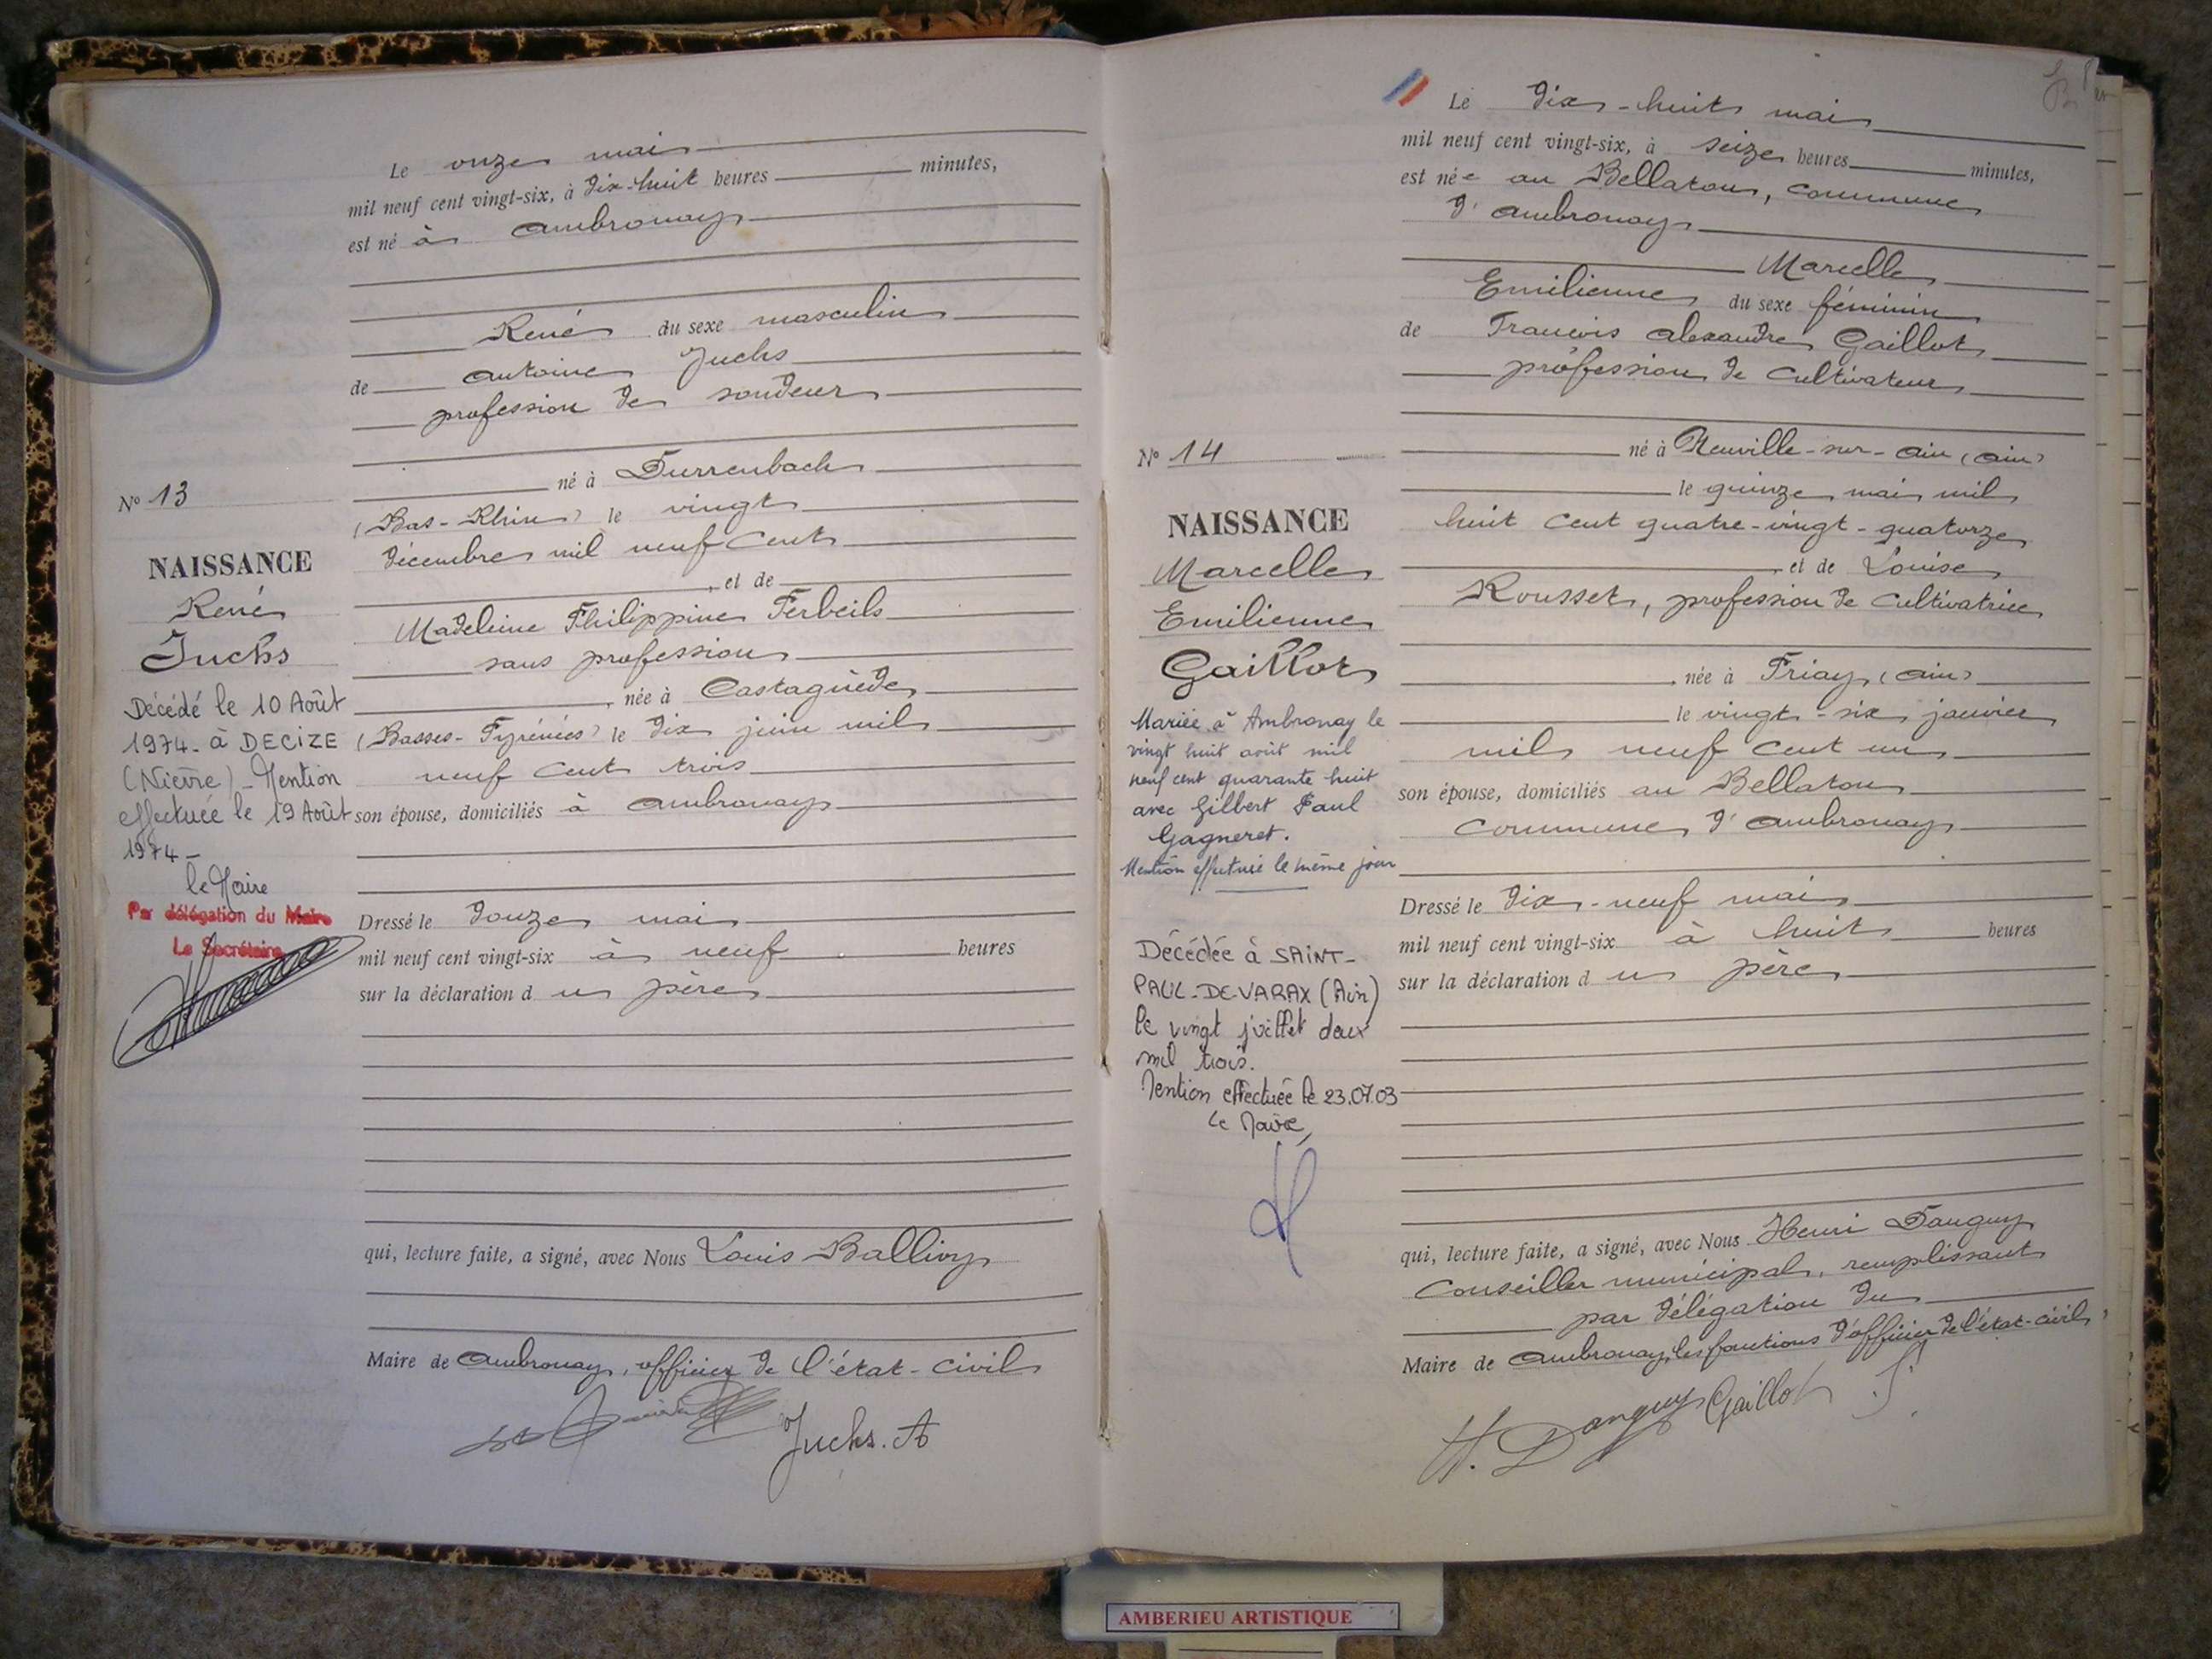 Le onze mai
mil neuf cent vingt-six, à dix-huit heures minutes,
est né à Ambronay
René du sexe masculin
de Antoine Juchs
profession de sondeur
né à Durrenbach
(Bas-Rhin) le vingt
décembre mil neuf cent
, et de
Madeleine Philippine Perbeils
sans profession
, née à Castagnède
(Basses-Pyrénées) le dix juin mil
neuf cent trois
son épouse, domiciliés à Ambronay
Dressé le douze mai
mil neuf cent vingt-six à neuf heures
sur la déclaration du père
qui, lecture faite, a signé, avec Nous Louis Ballivy
Maire de Ambronay, officier de l'état-civil
Juchs. A
N° 13
NAISSANCE
René
Juchs
Décédé le 10 Août
1974 - à DECIZE
(Nièvre) - Mention
effectuée le 19 Août
1974 -
le Maire
Par délégation du Maire
Le Secrétaire
Le dix-huit mai
mil neuf cent vingt-six, à seize heures minutes,
est née au Bellaton, commune
d'Ambronay
Marcelle
Emilienne du sexe féminin
de François Alexandre Gaillot
profession de cultivateur
né à Neuville-sur-Ain (Ain)
le quinze mai mil
huit cent quatre-vingt-quatorze
, et de Louise
Rousset, profession de cultivatrice
, née à Priay (Ain)
le vingt-six janvier
mil neuf cent un
son épouse, domiciliés au Bellaton
commune d'Ambronay
Dressé le dix-neuf mai
mil neuf cent vingt-six à huit heures
sur la déclaration du père
qui, lecture faite, a signé, avec Nous Henri Danguy
conseiller municipal, remplissant
par délégation du
Maire de Ambronay, les fonctions d'officier de l'état-civil,
H. Danguy Gaillot
N° 14
NAISSANCE
Marcelle
Emilienne
Gaillot
Mariée à Ambronay le
vingt huit août mil
neuf cent quarante huit
avec Gilbert Paul
Gagneret.
Mention effectuée le même jour
Décédée à SAINT-
PAUL-DE-VARAX (Ain)
le vingt juillet deux
mil trois.
Mention effectuée le 23.07.03
Le Maire,
AMBERIEU ARTISTIQUE